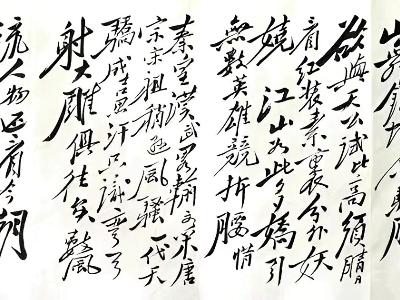 山舞銀蛇原馳
欲與天公試比高須晴
看紅裝素裹分外妖
嬈江山如此多嬌引
無數英雄競折腰惜
秦皇漢武略輸文采唐
宗宋祖稍遜風騷一代天
驕成吉思汗只識彎弓
射大雕俱往矣數風
流人物还看今朝